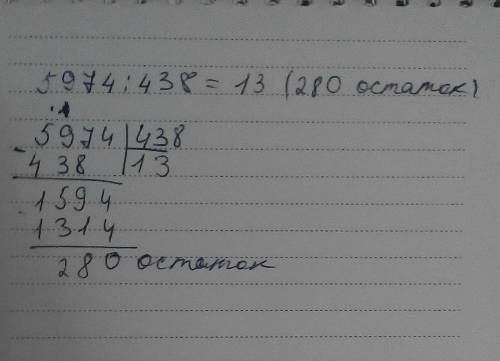 5974:438 = 13 (280 остаток)
5974 438
- 438 13
1594
1314
280 остаток